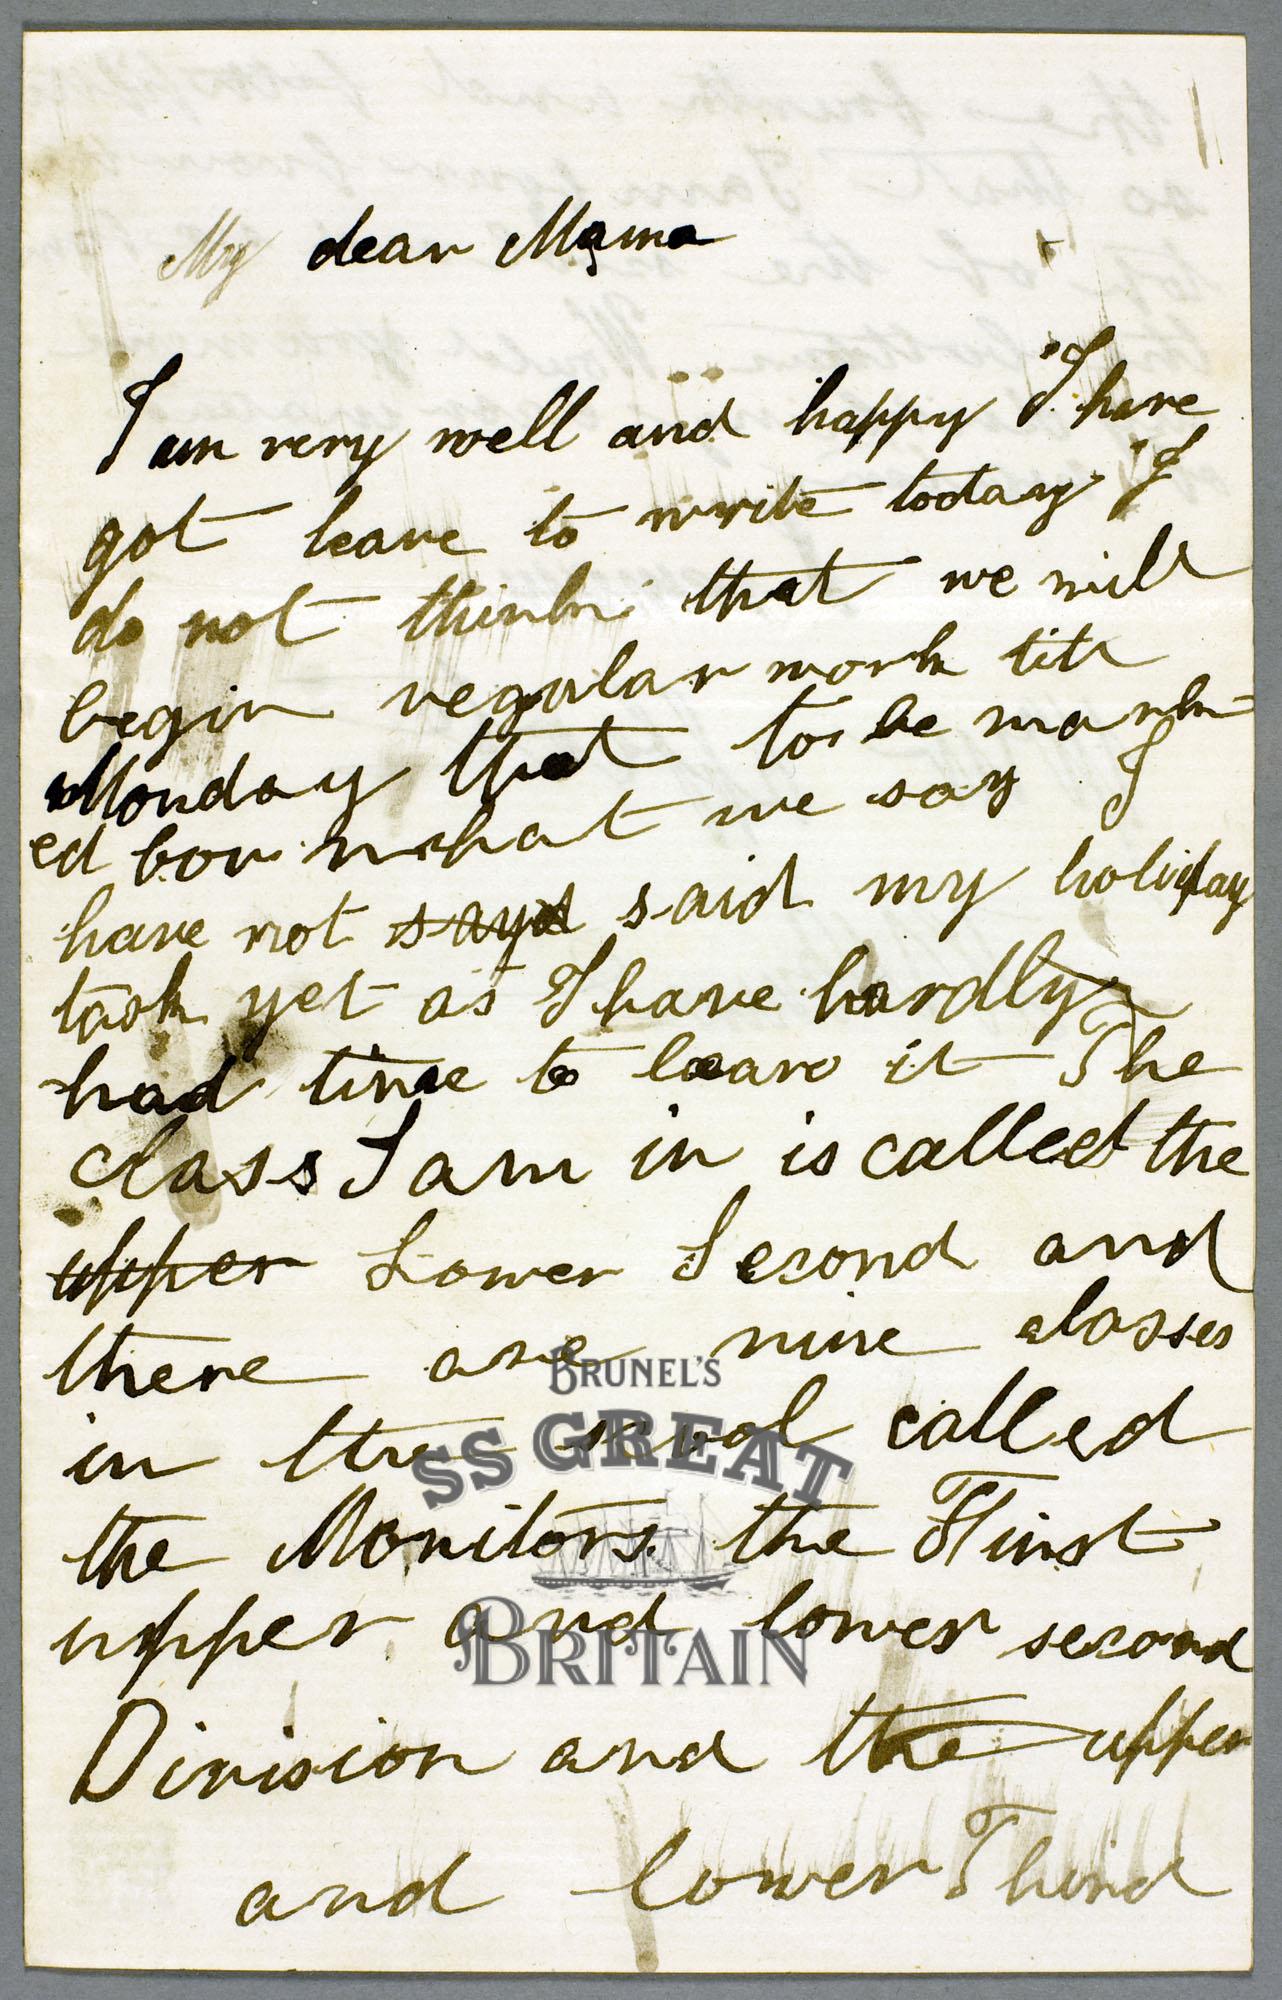 My dear Mama
I am very well and happy I have
got leave to write today I
do not think that we will
begin regular work till
Monday that to be mark-
ed for what we say I
have not sayd said my holiday
task yet as I have hardly
had time to learn it The
class I am in is called the
upper Lower Second and
there are nine classes
in the scool called
the Monitors the First
upper and lower second
Division and the upper
and lower Third
BRUNEL'S
SS GREAT
BRITAIN